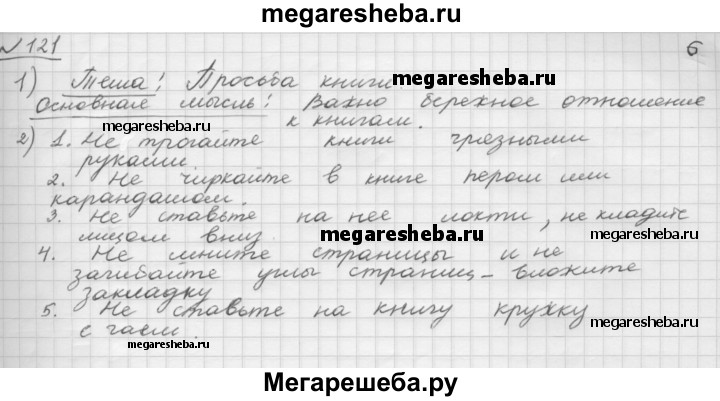 megaresheba.ru
№ 121
6
1) Тема: Просьба книги megaresheba.ru
Основная мысль: Важно бережное отношение
megaresheba.ru к книгам.
2) 1. Не трогайте книги грязными
руками megaresheba.ru
2. Не чиркайте в книге пером или
карандашом.
3. Не ставьте на нее локти, не кладите
лицом вниз megaresheba.ru
4. Не мните страницы и не
загибайте углы страниц – вложите
закладку
5. Не ставьте на книгу кружку
с чаем megaresheba.ru
megaresheba.ru
Мегарешеба.ру